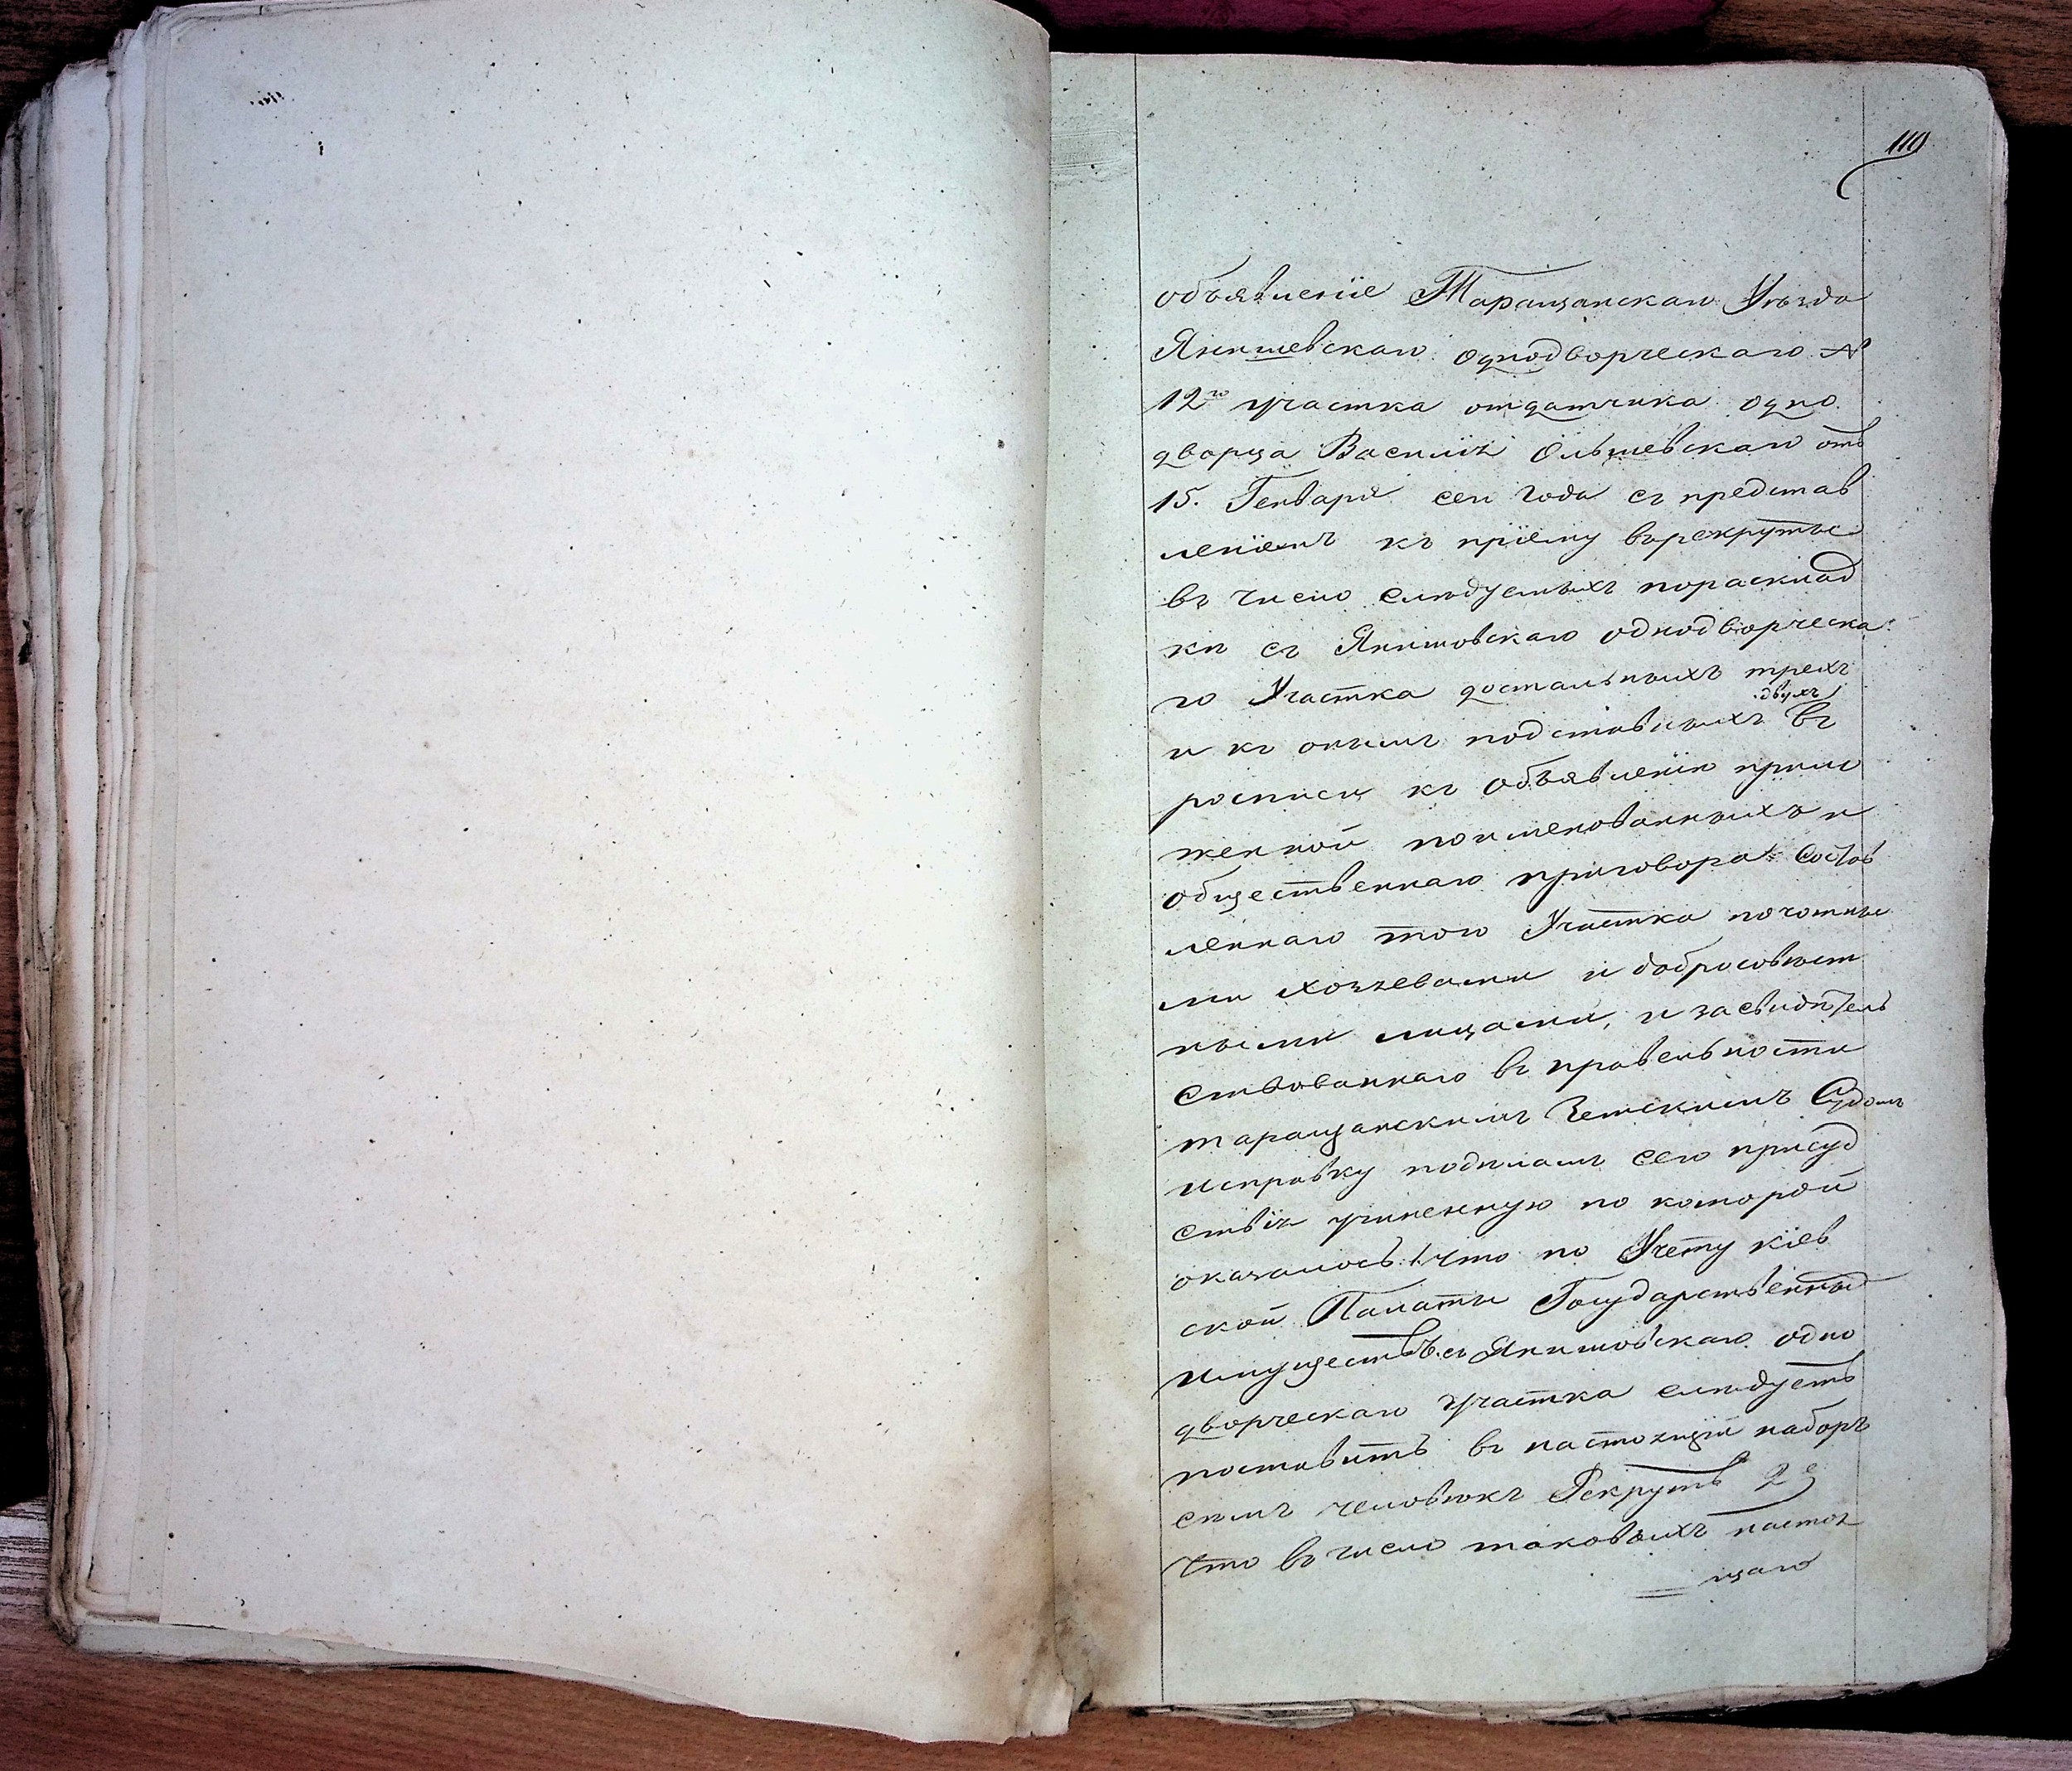 119
объявленіе Таращанскаго Уѣзда
Янишевскаго однодворческаго №
12го участка отдатчика одно
дворца Василія Ольшевскаго отъ
15. Генваря сего года съ представ
леніемъ къ пріему въ рекруты
въ число слѣдуемыхъ по расклад
ки съ Янишовскаго однодворческа
го Участка достальныхъ трехъ
и къ онымъ подставныхъ двухъ въ
росписи къ объявленію прило
женной поименованныхъ и
общественнаго приговора состав
леннаго того Участка почотны
ми хозяевами и добросовѣст
ными лицами, и засвидѣтель
ствованнаго въ правельности
таращанскимъ Земскимъ Судомъ
исправку подѣламъ сего присуд
ствія учиненную по которой
оказалось: 1 что по Учету кіев
ской Палаты Государственныхъ
имуществъ съ Янишовскаго одно
дворческаго участка слѣдуетъ
поставить въ настоящій наборъ
семь человѣкъ Рекрутъ 2е
что въ число таковыхъ настоя
щаго